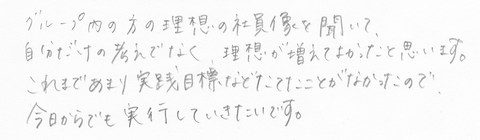 グループ内の方の理想の社員像を聞いて、
自分だけの考えでなく、理想が増えてよかったと思います。
これまであまり実践目標などたてたことがなかったので、
今日からでも実行していきたいです。